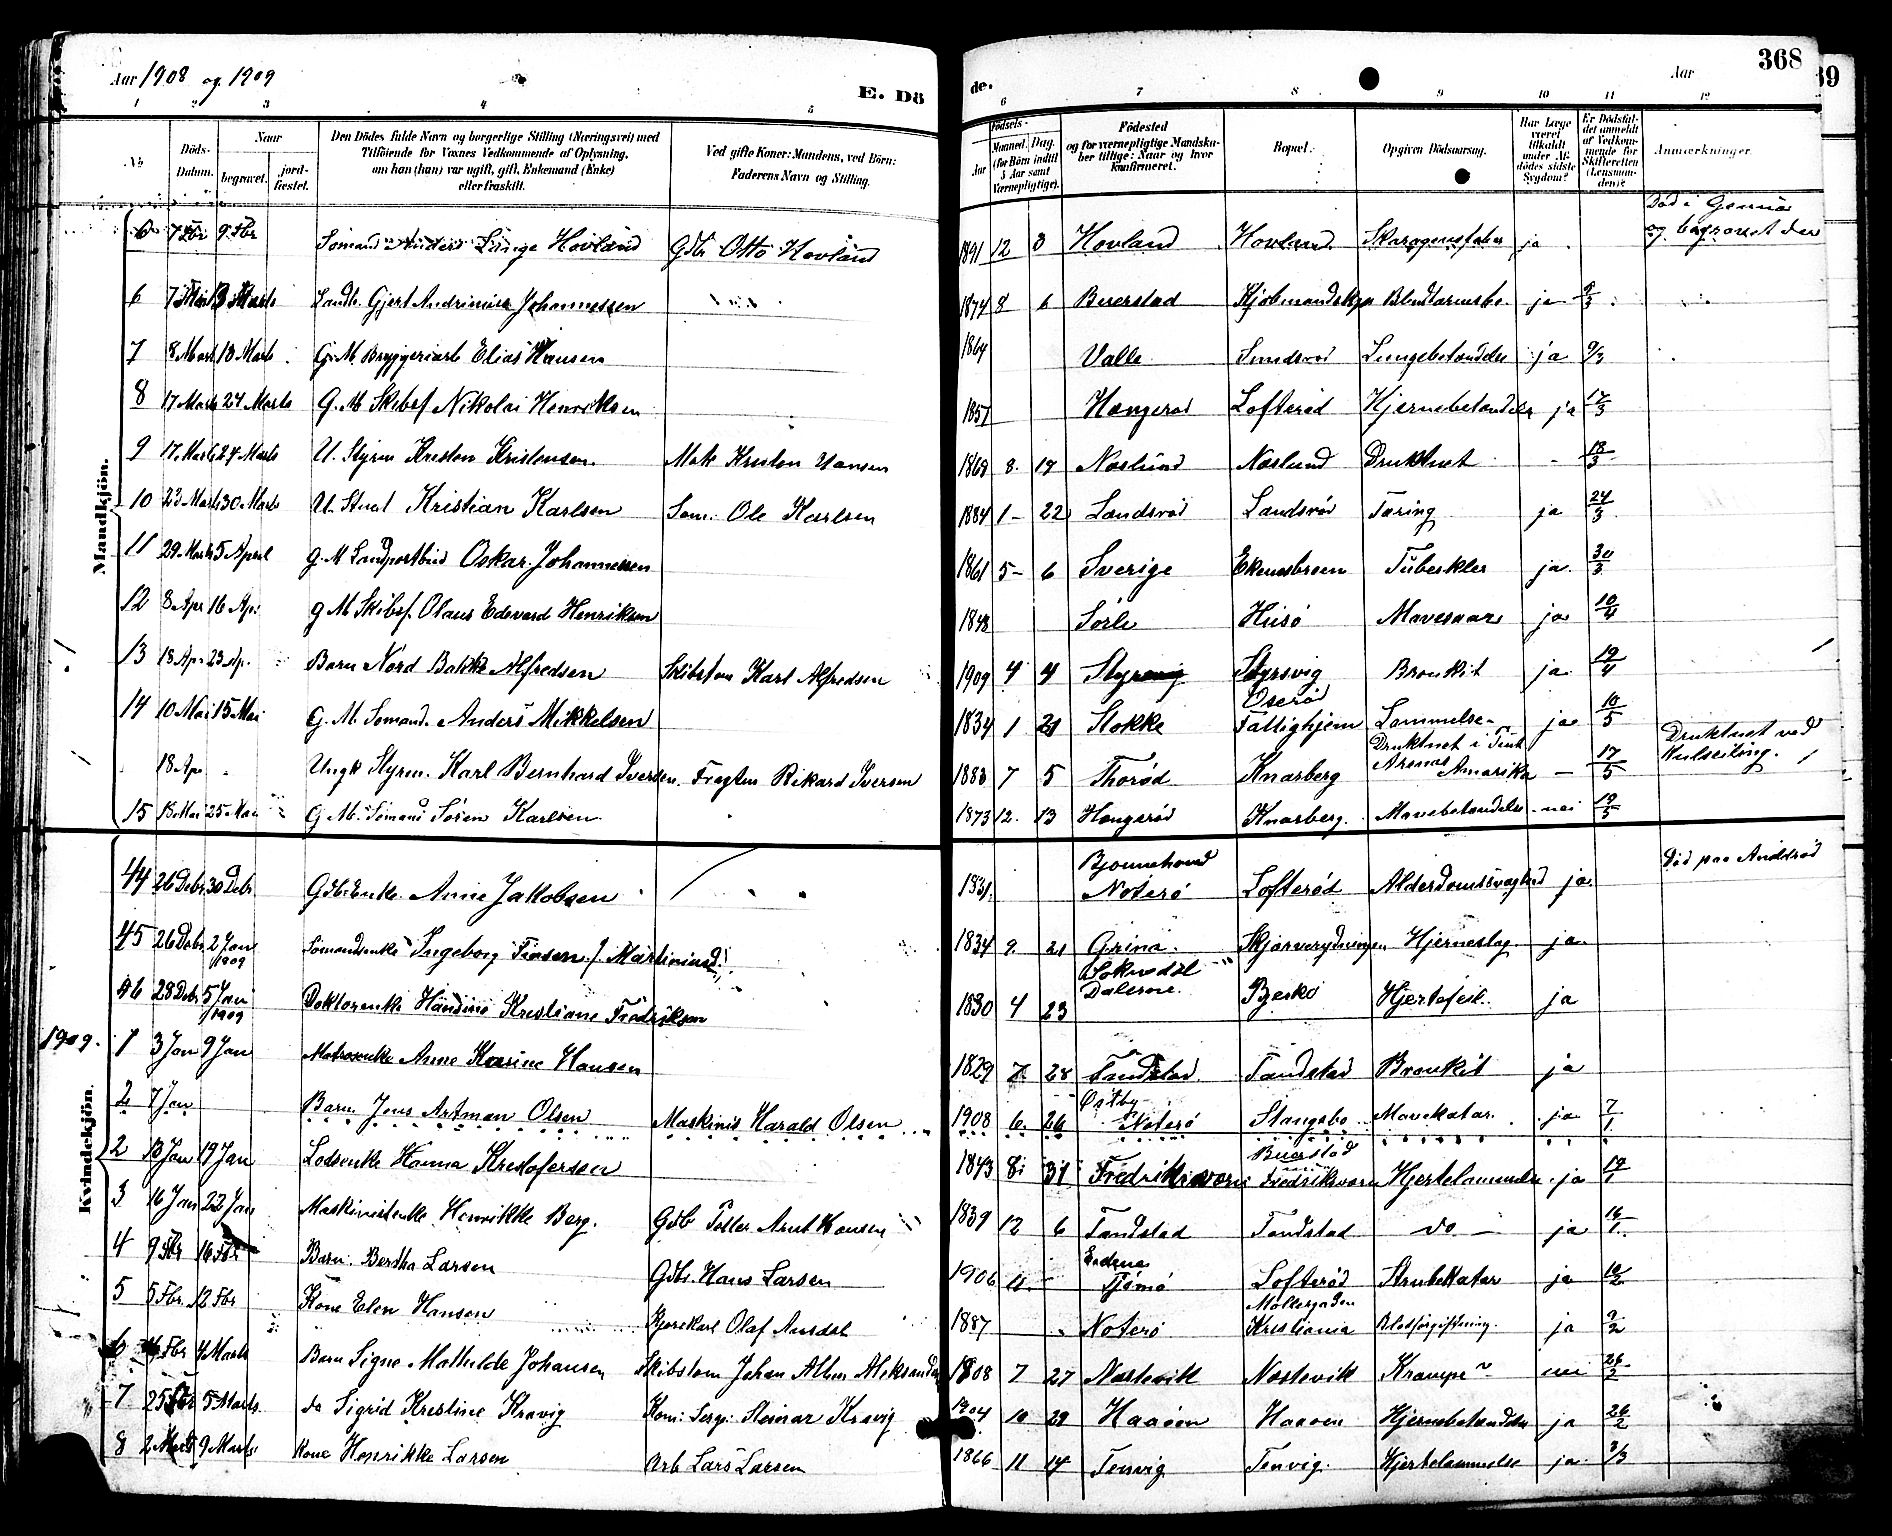 Aar 1908 og 1909
E. Dö
de.
Aar
368
1 2 3 4 5 6 7 8 9 10 11 12
No
Döds-Datum.
Naar
begravet.
jord-fæstet.
Den Dödes fulde Navn og borgerlige Stilling (Næringsvei) med
Tilföiende for Voxnes Vedkommende af Oplysning,
om han (hun) var ugift, gift, Enkemand (Enke)
eller fraskilt.
Ved gifte Koner: Mandens, ved Börn:
Faderens Navn og Stilling.
Födsels-
Aar
Maaned.
Dag.
(for Börn indtil 5 Aar samt Værnepligtige).
Födested
og for værnepligtige Mandskaber tillige: Naar og hvor konfirmeret.
Bopæl.
Opgiven Dödsaarsag.
Har Læge været tilkaldt under Afdödes sidste Sygdom?
Er Dödsfaldet anmeldt af Vedkommende for Skifteretten (Lensmanden)?
Anmærkninger.
Mandkjön.
6 7 Fbr 9 Fbr Sømand Anders Lange Hovland Gdb. Otto Hovland 1891 12 3 Hovland Hovland ja Død i Genua og begravet der
6 Gjert Johannessen 1874 8 6 Buerstad ja
7 8 Marts 13 Marts G. M. Bryggeriarb Elias Hansen 1864 Valle Sundsrød Lungebetændelse ja 9/3
8 17 Marts 24 Marts G. M. Skibsf Nikolai Henriksen 1857 Hængerød Lofterød Hjernebetændelse ja 17/3
9 17 Marts 24 Marts U. Styrm Kristen Kristensen 1869 8 17 Næslund Druknet 18/3
10 23 Marts 30 Marts U. Stud Kristian Karlsen Søm. Ole Karlsen 1884 1 22 Landsrød Landsrød Tæring ja 24/3
11 29 Marts 5 April G. M Landpostbud Oskar Johannessen 1861 5 6 Sverige Ekenesbroen Tuberkler ja 30/3
12 8 Apr 16 Ap. G M Skibsf. Olaus Edevard Henriksen 1848 Sørli Husø Mavesaar ja 10/4
13 18 Apr 23 Ap. Barn Nord Bakke Alfredsen Skibstøm Karl Alfredsen 1909 4 4 Styrsvig Styrsvig Bronkit ja 19/4
14 10 Mai 15 Mai G. M. Sømand Anders Mikkelsen 1834 1 21 Stokke Oserød Fattighjem Lammelse ja 10/5
18 Ap Ungk Styrm. Karl Bernhard Iversen Rikard Iversen 1883 7 5 Thorød Knarberg Druknet i Amerika 17/5 Druknet ved Kulseiling.
15 18 Mai 25 Mai G. M. Sømand Søren Karlsen 1873 12 13 Hængerød Knarberg Mavebetændelse nei 19/5
Kvindekjön.
44 26 Debr 30 Debr Gdb. Enke Anne Jakobsen 1831 Nøterø Lofterød Alderdomssvaghed ja
45 26 Debr 2 Jan 1909 Sømandsenke Ingeborg 1834 9 21 Grina Skjærverydningen Hjerneslag ja
46 28 Debr 5 Jan 1909 Doktorenke Kristiane Fredriksen 1830 4 23 Bjerkø Hjertefeil ja
1909.
1 3 Jan 9 Jan Matrosenke Anne Karine Hansen 1829 7 28 Tandstad Tandstad Bronkit ja
2 7 Jan Barn Jens Artman Olsen Maskinist Harald Olsen 1908 6 26 Østby Nøterø Stangebo Mavekatar ja 7/1
2 13 Jan 19 Jan Lodsenke Hanna Kristofersen 1843 8 31 Fredriksværn Buerstad Fredriksværn Hjertelammelse ja 19/1
3 16 Jan 22 Jan Maskinistenke Henrikke Berg. Gdb Peller Arnt Hansen 1839 12 6 Tandstad Tandstad do ja 16/1
4 9 Fbr 16 Fbr Barn Bertha Larsen Gdb. Hans Larsen 1906 11 Tjømø Lofterød Strubekatar ja 10/2
5 5 Fbr 12 Fbr Kone Elen Hansen Kjørekarl Olaf 1887 Nøterø Møllergaden Kristiania Blodforgiftning ja 9/2
6 4 Marts Barn Signe Mathilde Johansen Skibstøm Johan 1908 7 27 Næstevik Næstevik Krampe nei 26/2
7 25 Fbr 5 Marts do Sigrid Kristine Kravig Kom: Serg: Steinar Kravig 1904 10 29 Haaøen Haaøen Hjernebetændelse ja 26/2
8 2 Marts 9 Marts Kone Henrikke Larsen Arb Lars Larsen 1866 11 14 Tenvig Tenvig Hjertelammelse ja 3/3